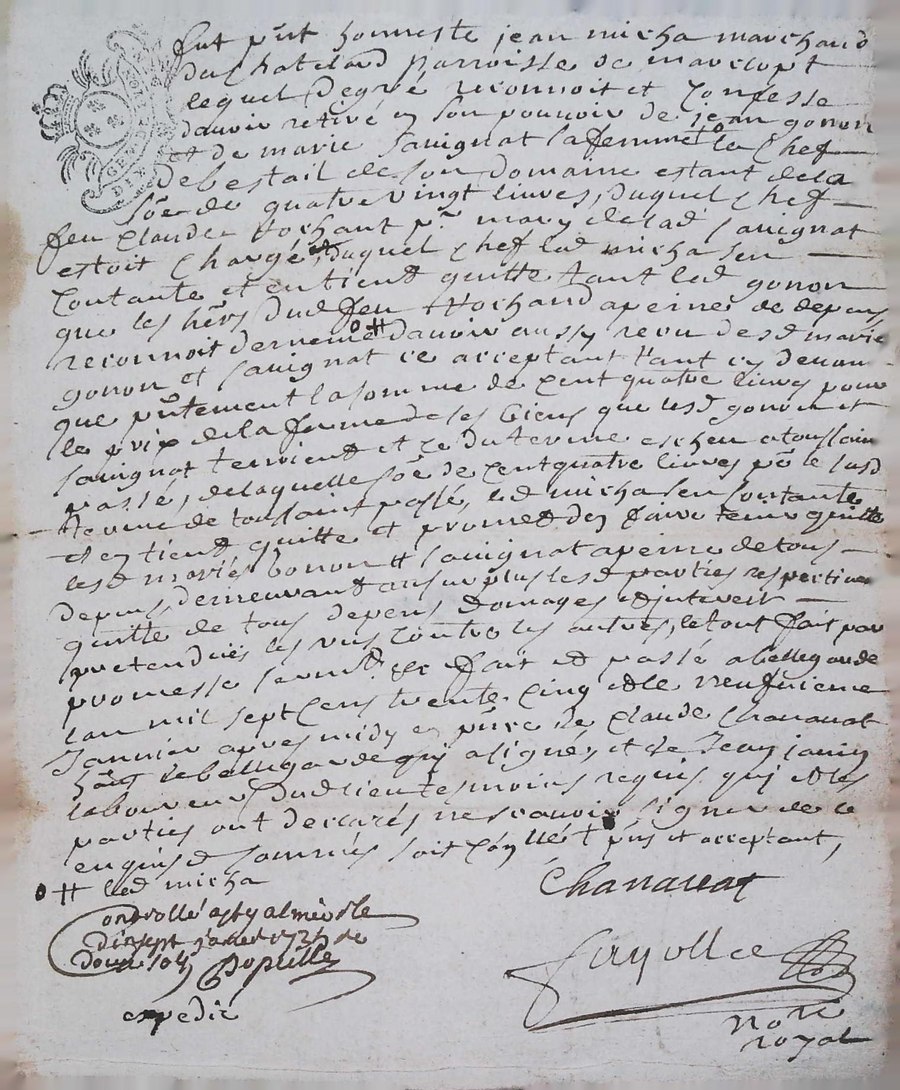 fut p̃nt honneste jean micha marchand
du Chatelard parroisse de marclopt
lequel degré reconnoit et Confesse
davoir retiré en son pouvoir de jean gonon
et de marie sauignat la femme le Chef
de bestail de son domaine estant de la
sõe de quatre vingt liures, duquel Chef
feu Claude Hochant mary de lad sauignat
estoit Chargé, duquel Chef led micha sen
Contante et en tient quitte tant led gonon
que les hẽrs dud feu Hochand apeine de depens,
reconnoit derneme o# dauoir aussy receu desd marie
gonon et sauignat ce acceptant tant cy deuan
que p̃ntement la somme de Cent quatre liures pour
le prix de la ferme de ses biens que lesd gonon et
sauignat tenoient et ce du terme escheu a toussain
passé, de laquelle sõe de Cent quatre liures pr̃ le susd
terme de toussaint passé, led micha sen Contante
et en tient quitte et promet den faire tenir quitte
lesd mariés gonon et sauignat apeine de tous
depens, demeurant au surplus lesd parties respectiue
quitte de tous depens domages et interest
pretendües les vns Contre les autres, le tout fait par
promesse serm̃t &c fait et passé a bellegarde
lan mil sept Cens trente Cinq et le neufuieme
Januier apres midy en p̃nce de Claude Chanauat
de bellegarde qui a signé, et de Jean januin
laboureur dud lieu tesmoins requis qui et les
parties ont declarés ne scauoir signer de ce
enquis et sommés soit Con̄llé p̃ns et acceptant,
o # led micha
Chanauat
Controllé a st galmier le
dix sept januier 1735 re
douze sols
fayolle
expedié
Nore
royal